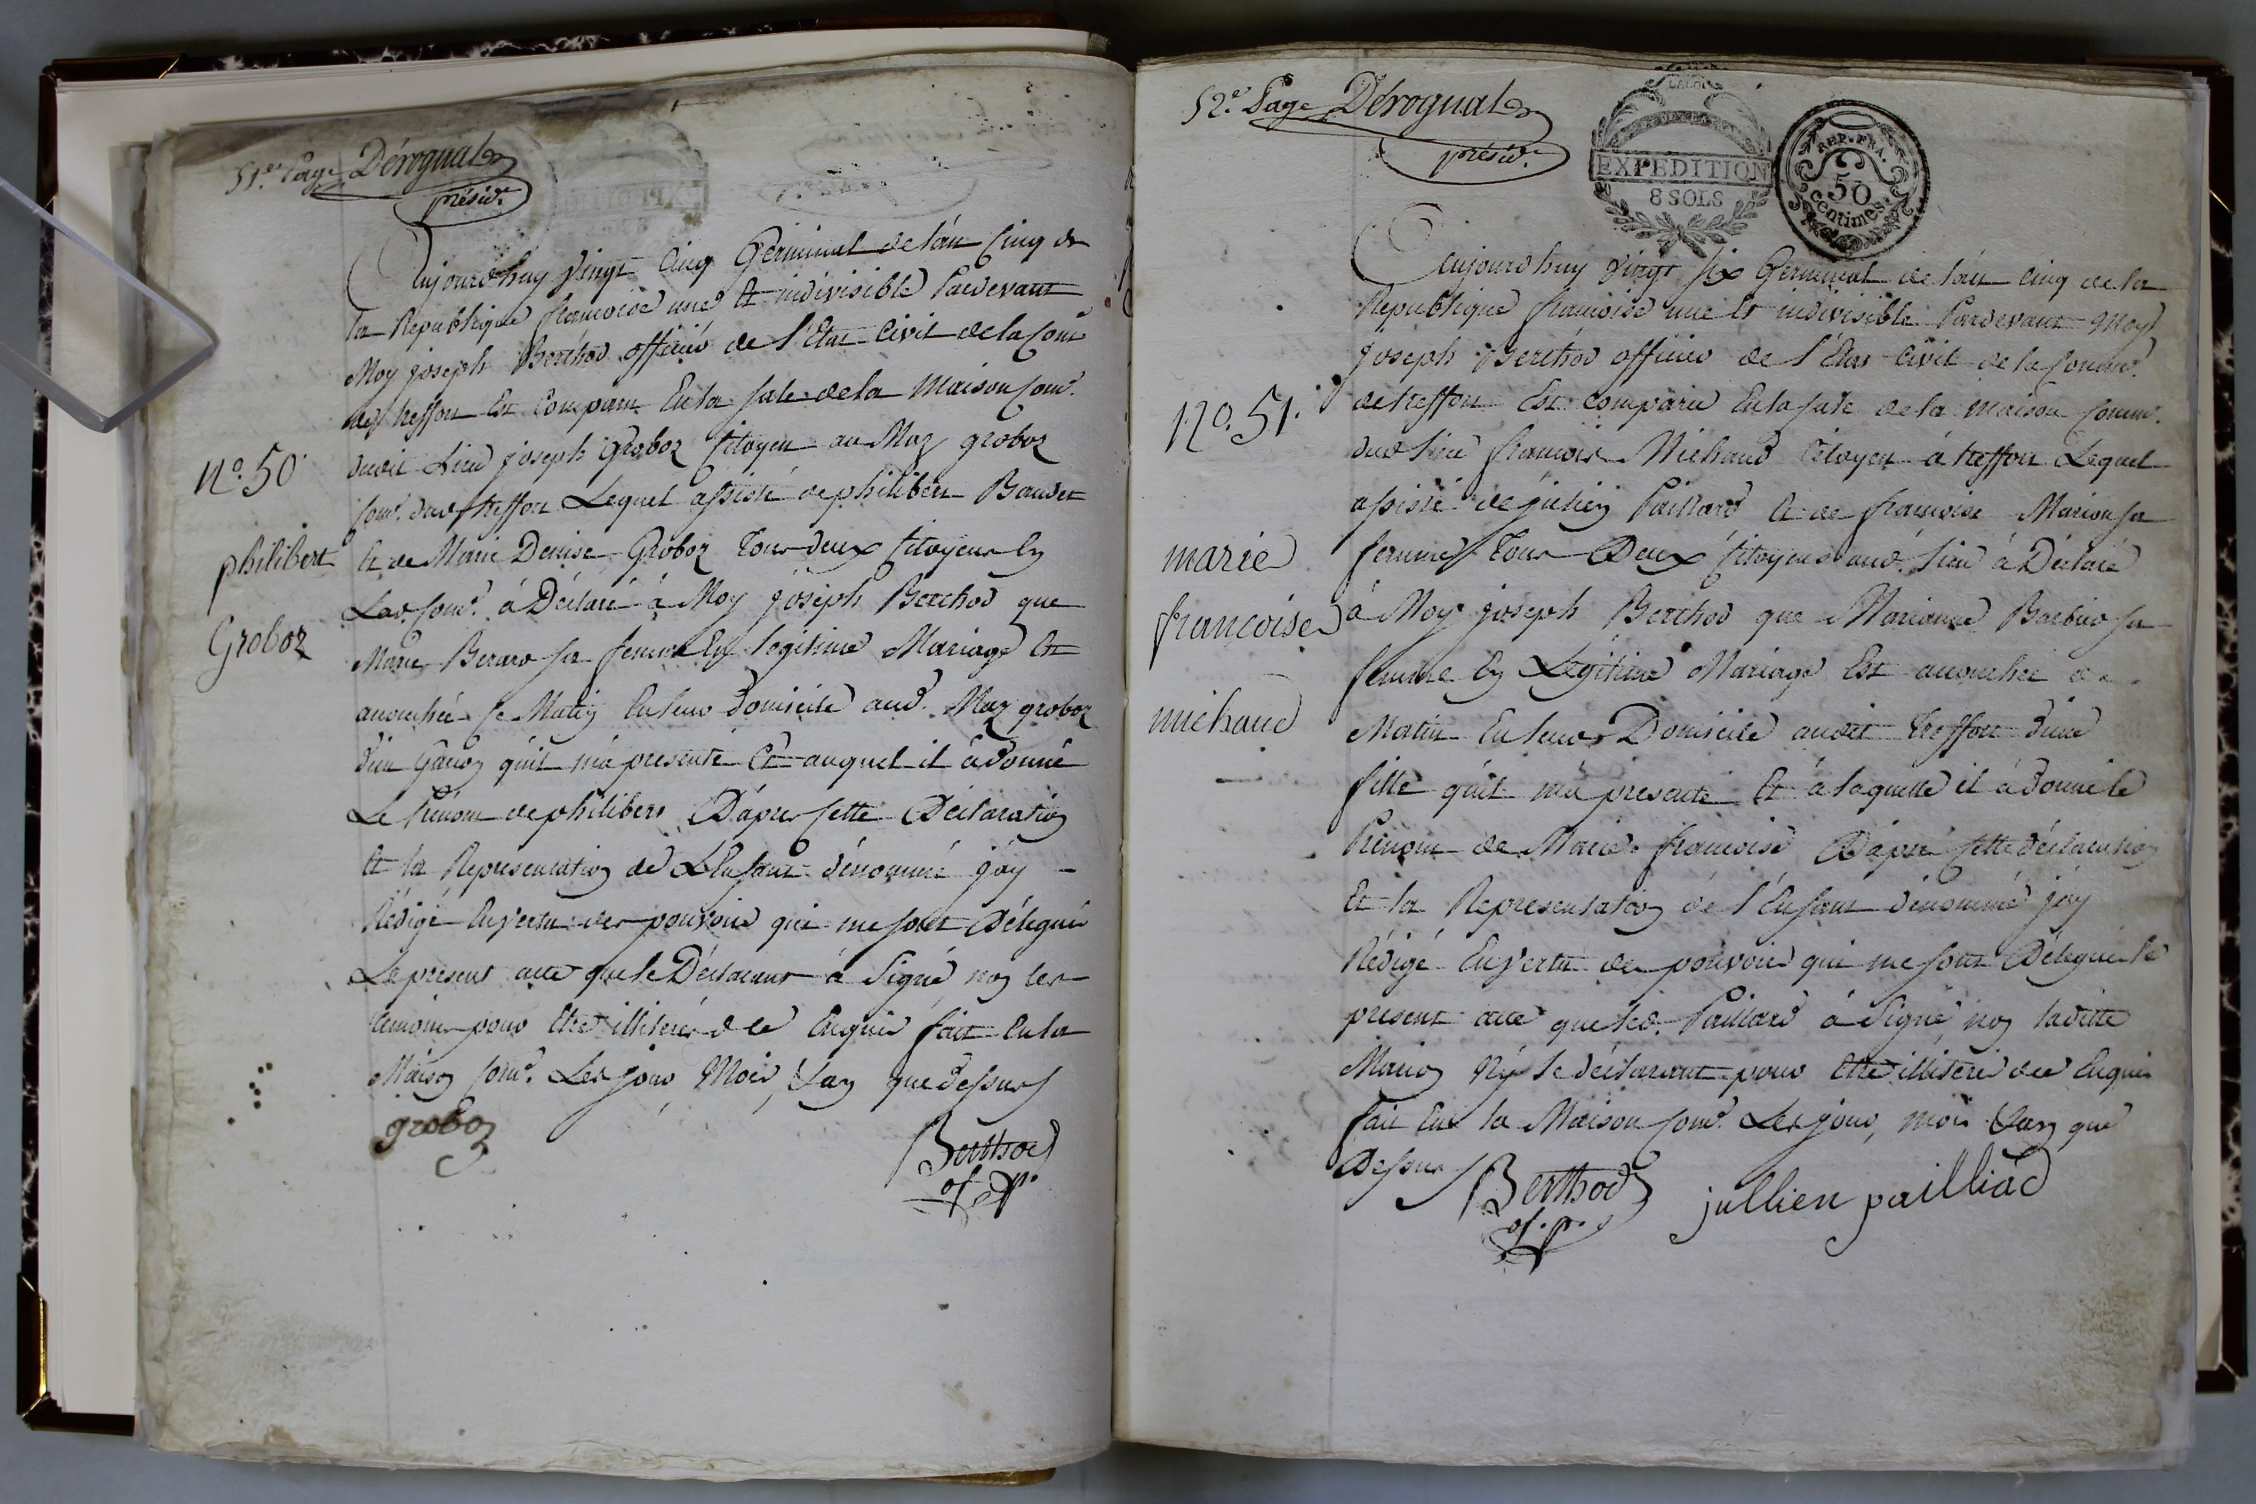 51e. Page Dérognat
présid.
Aujourdhuy Vingt Cinq Germinal de lán Cinq de
la Republique francoise une Et indivisible Pardevant
Moy joseph Berthod officier de l'Etat Civil de la Com
de treffort Est Comparu En la sale de la Maison Com.
dudit Lieu joseph Groboz Citoyen au Maz groboz
Com. dud treffort Lequel assisté de philibert Baudet
Et de Marie Denise Groboz Tous deux Citoyens En
Lad. Com. à Déclaré à Moy joseph Berthod que
Marie Berard sa femme En legitime Mariage Est
accouchée Ce Matin En leur domicile aud. Maz groboz
d'un Garcon qu'il m'a presenté Et auquel il à donné
Le Prenom de philibert D'apres Cette Déclaration
Et la Representation de L'Enfant dénommé j'ay
Rédigé En vertu des pouvoirs qui me sont Délegués
Le present acte que le Déclarant à Signé non les
temoins pour Etre illiterés de ce Enquis fait En la
Maison Com. Les jour, Mois, & an que dessus
groboz
Berthod
of. p.
No. 50
philibert
Groboz
52e. Page Dérognat
présid.
EXPEDITION
8 SOLS
REP. FRA.
50
centimes.
Aujourdhuy Vingt Six Germinal de l'án Cinq de la
Republique francoise une Et indivisible Pardevant Moy
joseph Berthod officier de l'Etat Civil de la Comm.
de treffort Est comparu En la sale de la Maison Comm.
dud Lieu francois Michaud Citoyen à treffort Lequel
assisté de julien Paillard Et de francoise Marion sa
femme Tous Deux Citoyens aud. Lieu à Déclaré
à Moy joseph Berthod que Marianne Barbier sa
femme En Legitime Mariage Est accouchée ce
Matin En leur Domicile audit treffort d'une
fille qu'il m'a presenté Et à laquelle il à donné le
Prenom de Marie francoise D'apres Cette déclaration
Et la Representation de l'Enfant dénommé j'ay
Rédigé En vertu des pouvoirs qui me sont Délegués le
present acte que led. Paillard à Signé non ladite
Marion Ny le déclarant pour Etre illiteré de ce Enquis
fait En la Maison Com. Les jour, mois & an que
Dessus
Berthod
of. p.
jullien pailliad
No. 51.
marie
francoise
michaud